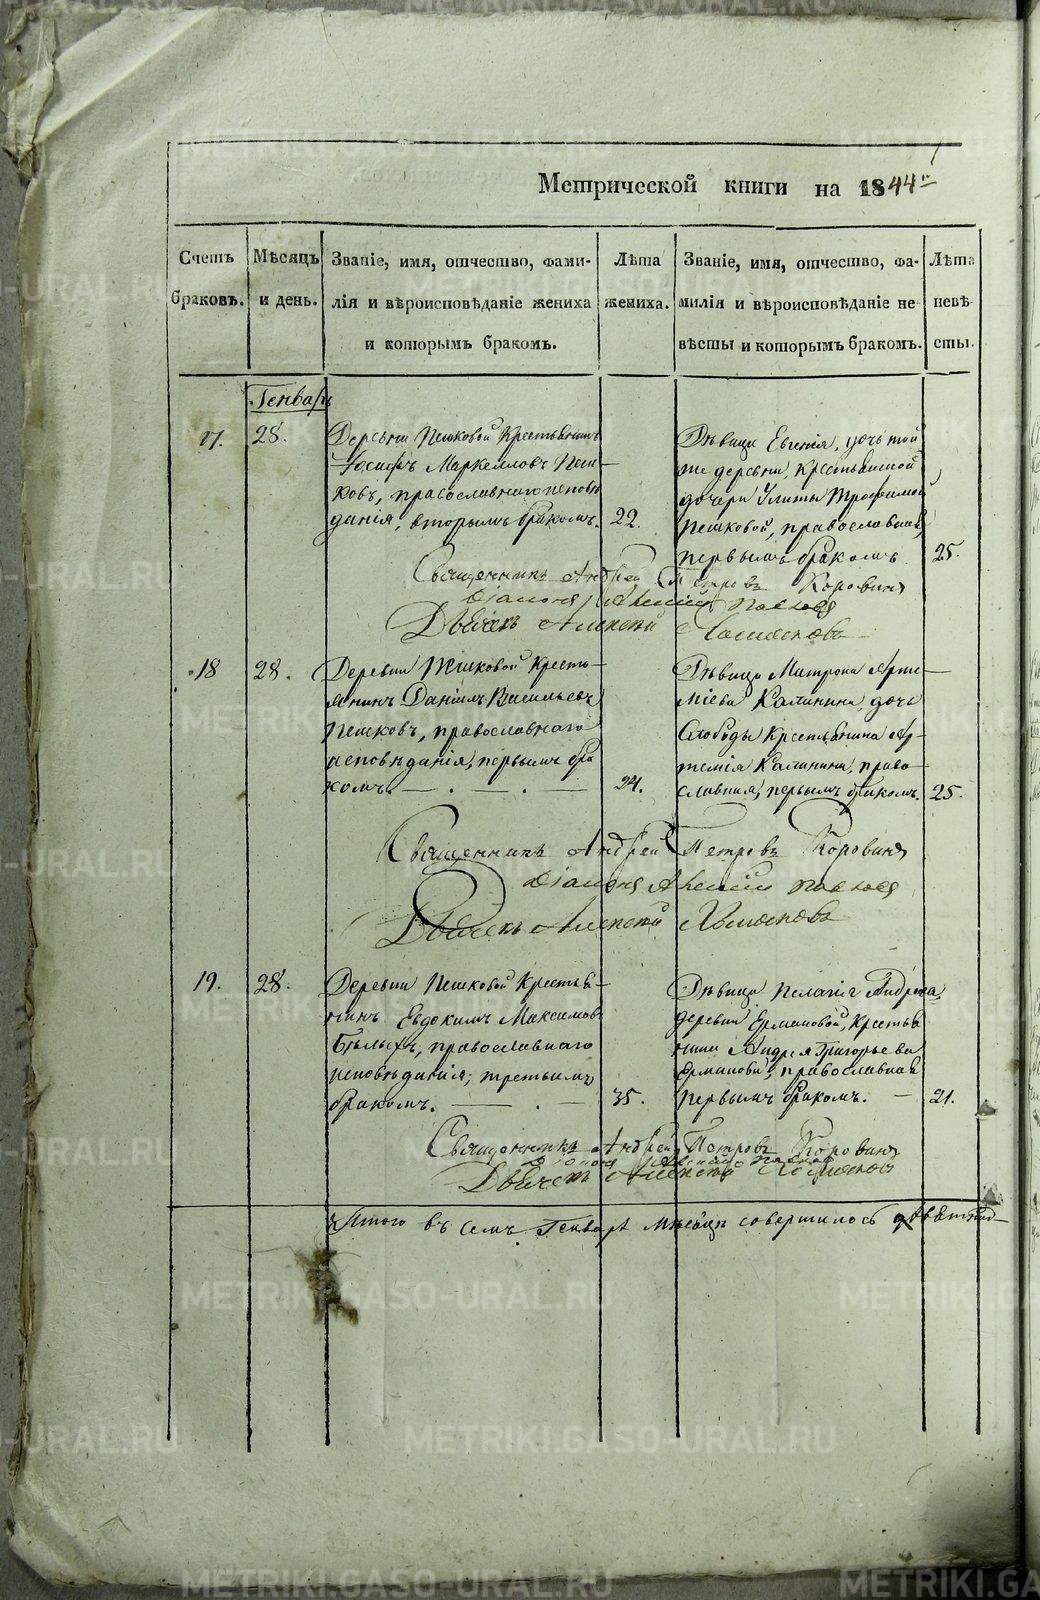 Метрической книги на 1844й
Счетъ браковъ.
Мѣсяцъ и день.
Званіе, имя, отчество, фами-
лія и вѣроисповѣданіе жениха
и которымъ бракомъ.
Лѣта жениха.
Званіе, имя, отчество, фа-
милія и вѣроисповѣданіе не-
вѣсты и которымъ бракомъ.
Лѣта невѣ-
сты.
Генварь
17.
28.
Деревни Пешковой Крестьянинъ
Іосифъ Маркелловъ Пеш-
ковъ, православнаго исповѣ
данія, вторымъ бракомъ.
22.
Дѣвица Евгенія, дочь той
же деревни, крестьянской
дочери Улиты Трофимой
Пешковой, православная,
первымъ бракомъ
25.
Священникъ Андрей Петровъ Коровинъ
Дьячекъ Алексей
18
28.
Деревни Пешковой Кресть-
янинъ Даніилъ Васильевъ
Пешковъ, православнаго
исповѣданія, первымъ бра
комъ.
24.
Дѣвица Матрона Арте-
міева Калинина, дочь
Слободы Крестьянина Ар-
темія Калинина, право-
славная, первымъ бракомъ.
25.
Священникъ Андрей Петровъ Коровинъ
Дьячекъ Алексей
19.
28.
Деревни Пешковой Крестья-
нинъ Евдокимъ Максимовъ
Бѣлыхъ, православнаго
исповѣданія, третьимъ
бракомъ.
35.
Дѣвица Пелагія Андреева,
деревни Ермаковой, Крестья
нина Андрея Григорьева
Ермакова, православная
первымъ бракомъ.
21.
Священникъ Андрей Петровъ Коровинъ
Дьячекъ Алексей
Итого въ семъ Генварѣ мѣсяцѣ совершилось девятнад-